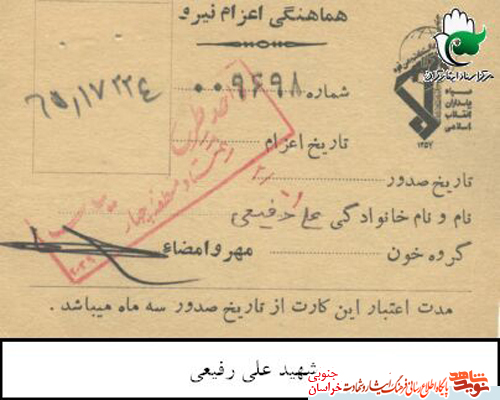 هماهنگی اعزام نیرو
مرکز اسناد ایثارگران
۶۵٫۱۷۲۲۴
شماره ۰۰۹۶۹۸
سپاه
پاسداران
انقلاب
اسلامی
۱۳۵۷
تاریخ اعزام
تاریخ صدور
نام و نام خانوادگی علی رفیعی
گروه خون مهر و امضاء
مدت اعتبار این کارت از تاریخ صدور سه ماه میباشد .
شهید علی رفیعی
نوید شاهد پایگاه اطلاع رسانی فرهنگ ایثار و شهادت خراسان جنوبی